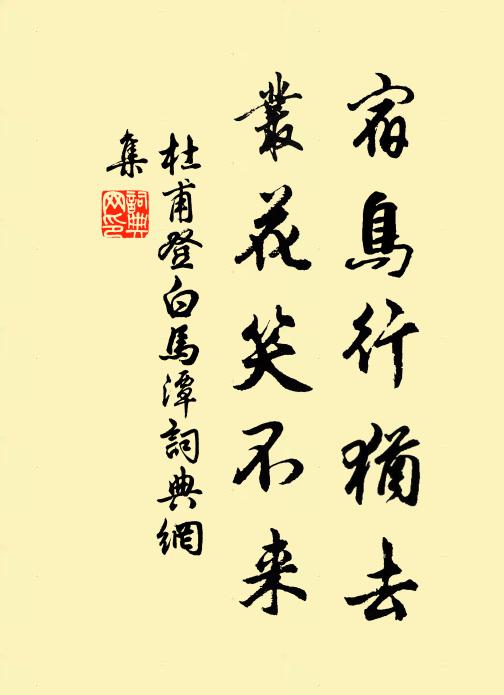 宿鳥行猶去
叢花笑不来
杜甫登白馬潭詞典網
集
詞典
网印